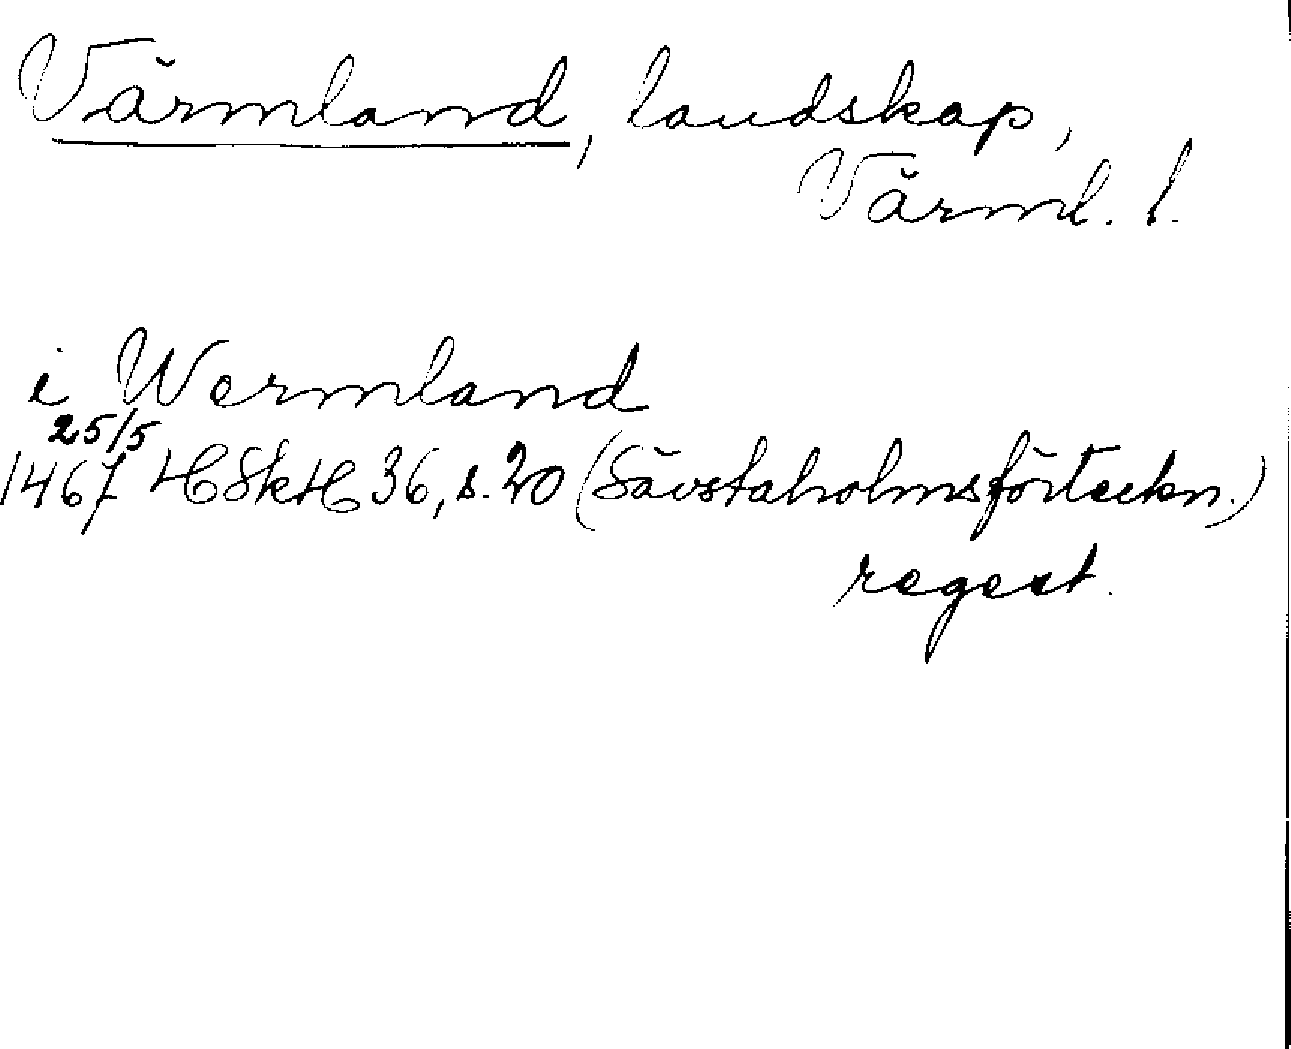 Värmland, landskap,
Värml. l.
i Wermland
25/5
1467 HSkH 36, s. 20 (Sävstaholmsförteckn.)
regest.